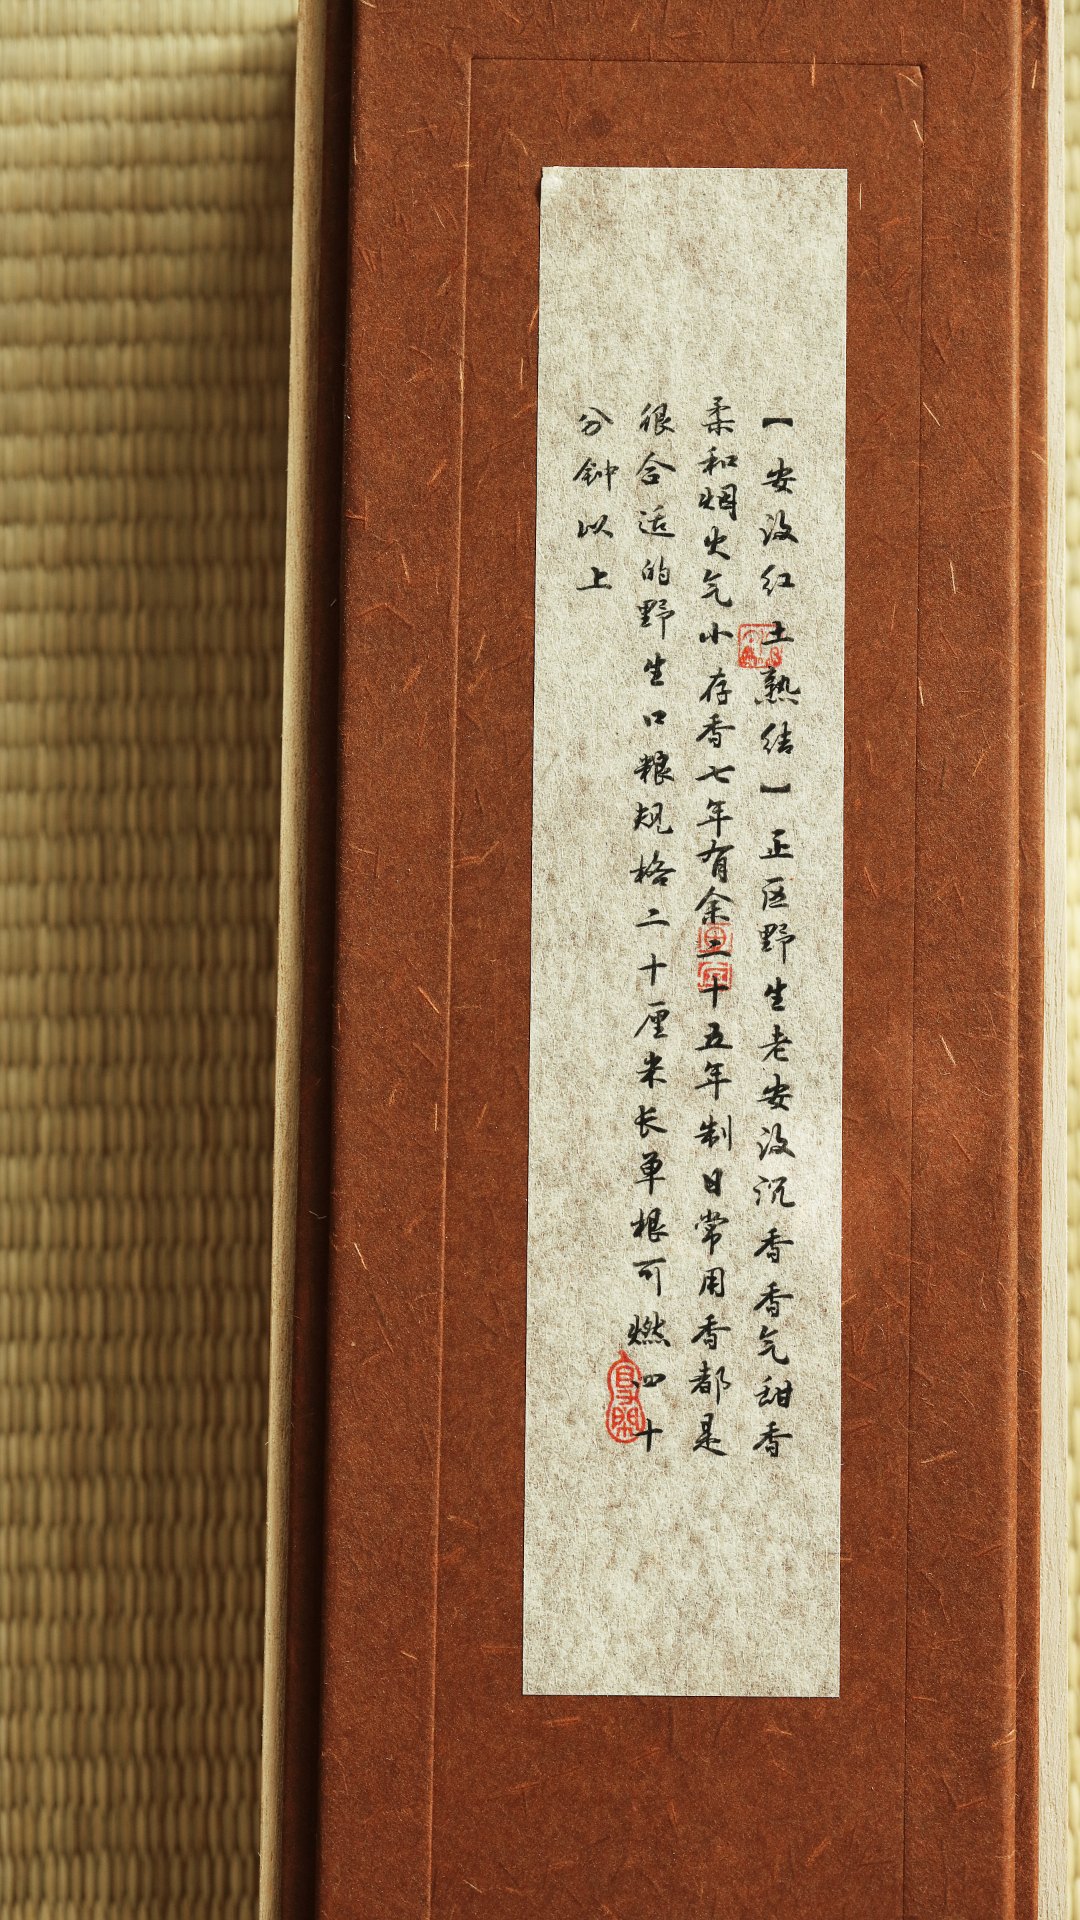 【安汶红土熟结】正区野生老安汶沉香香气甜香
柔和烟火气小存香七年有余二十五年制日常用香都是
很合适的野生口粮规格二十厘米长单根可燃四十
分钟以上